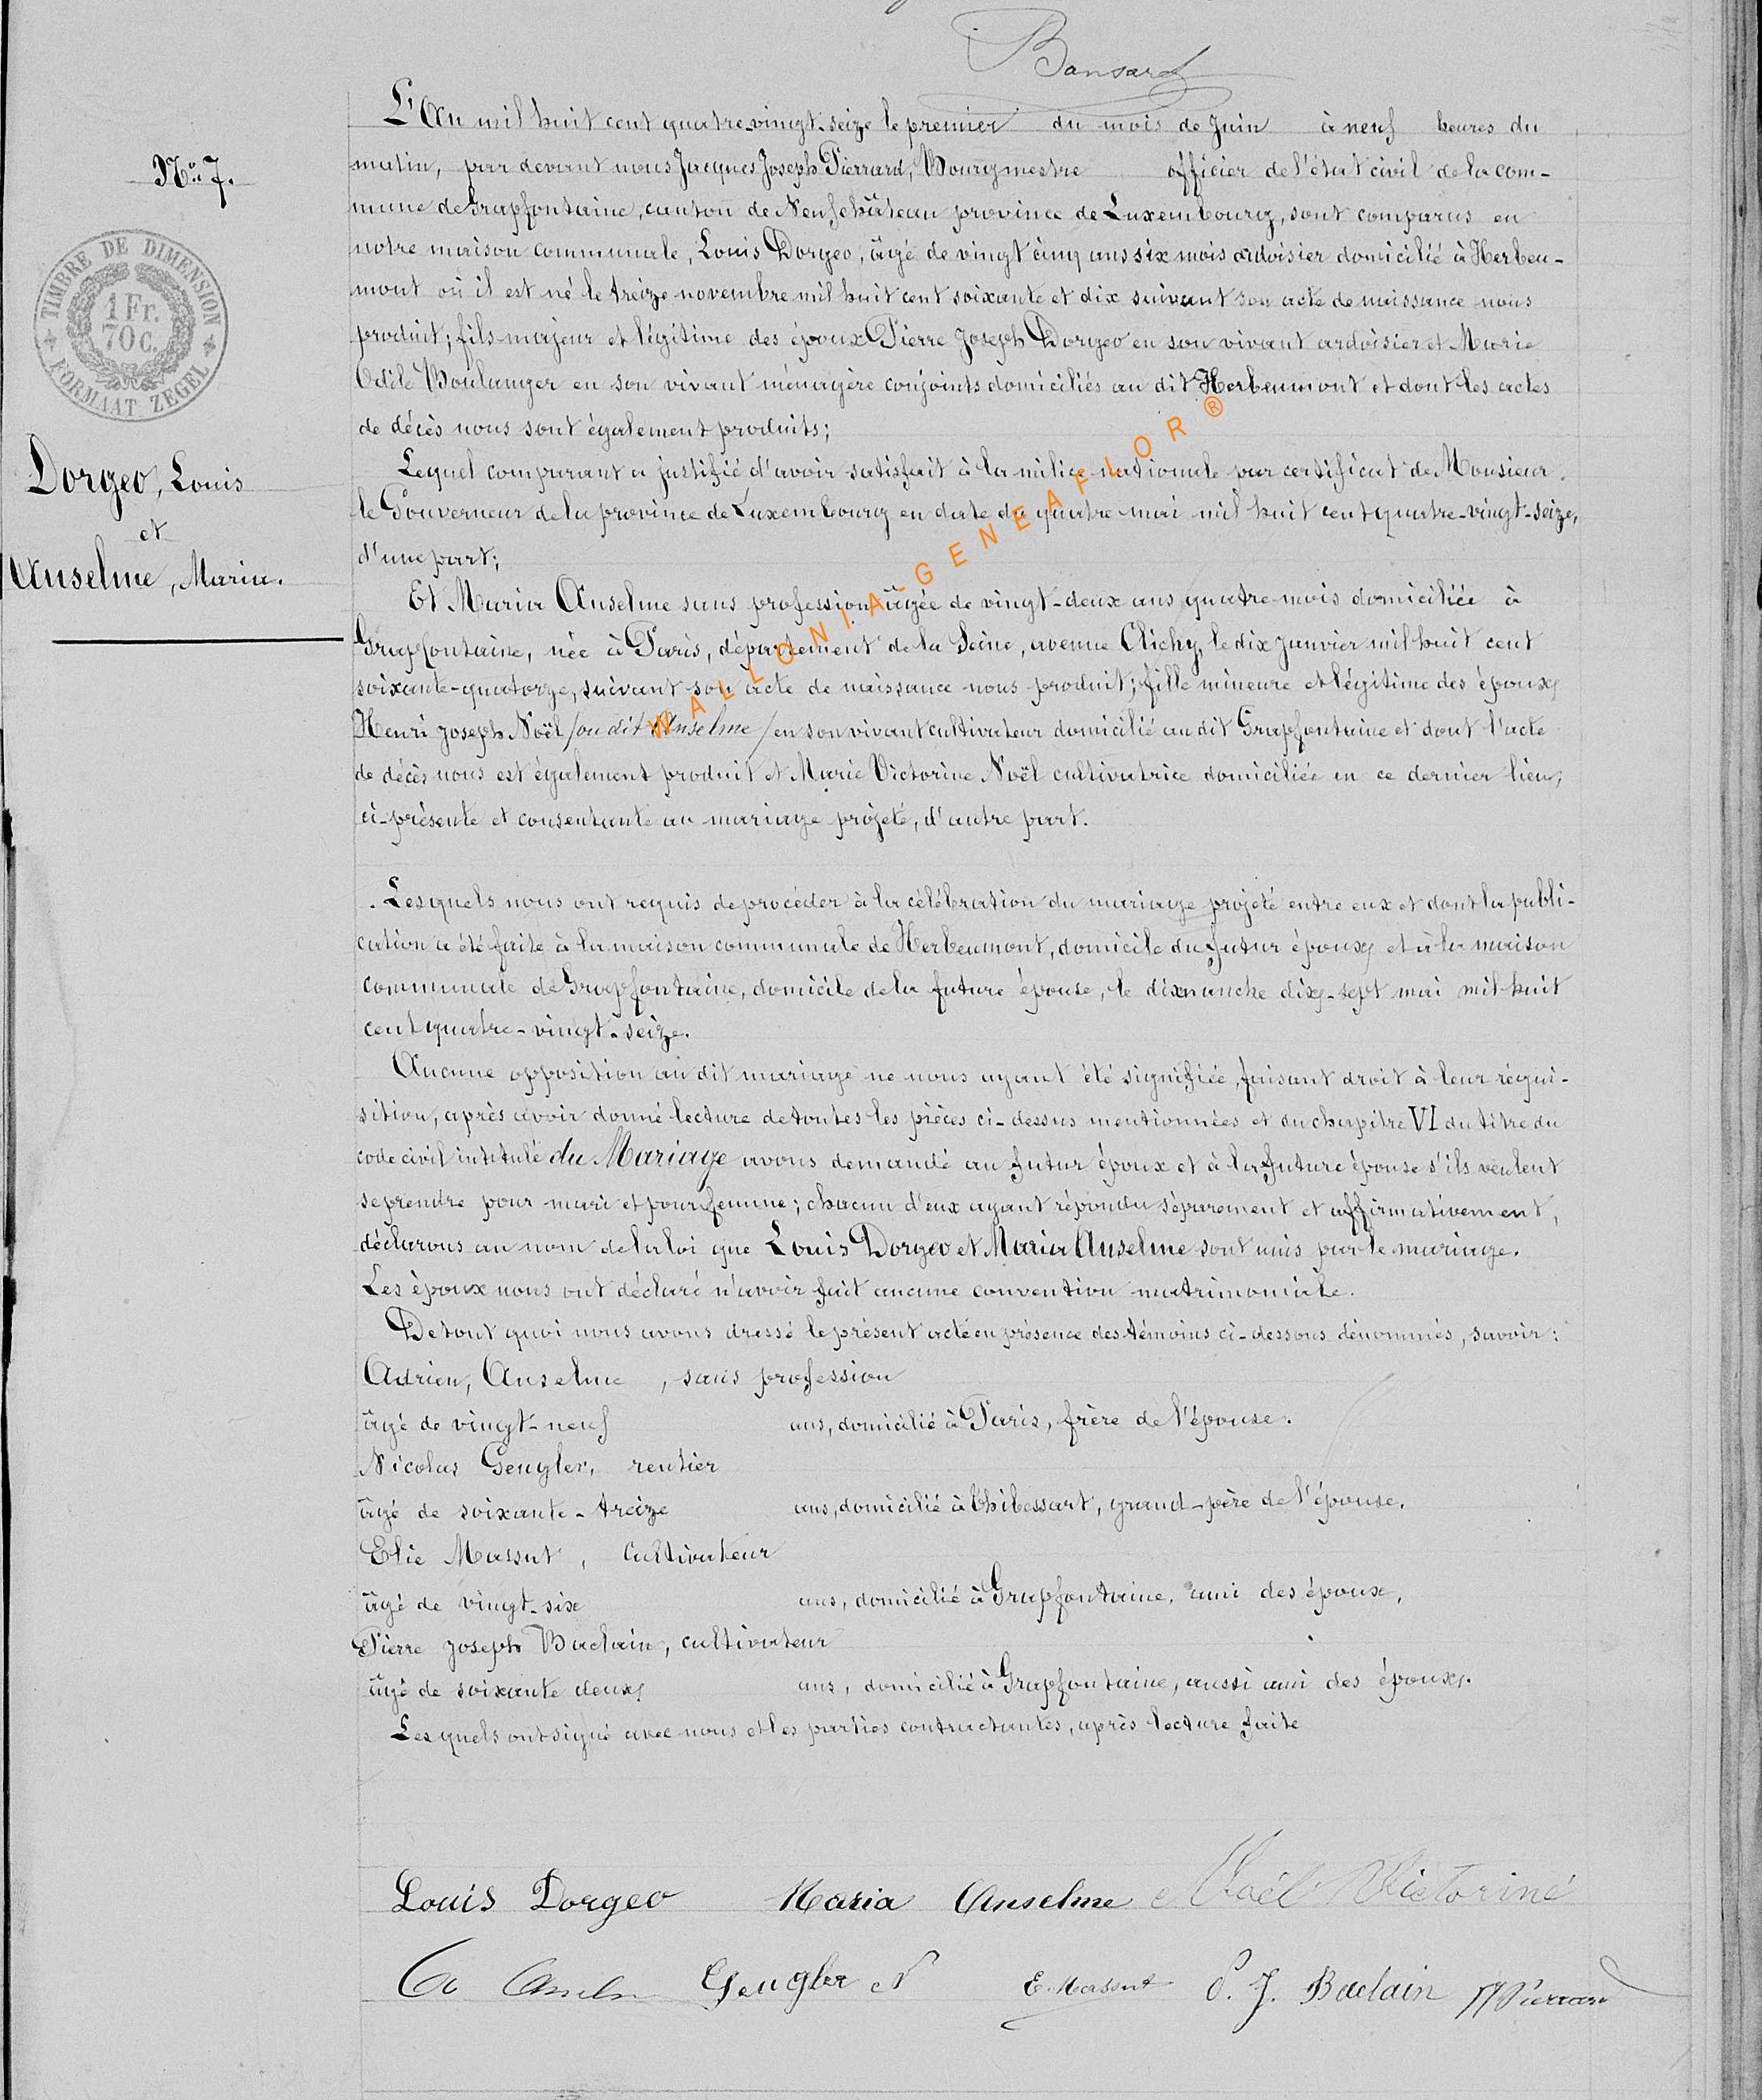 Bansard
L'An mil huit cent quatre-vingt-seize le premier du mois de Juin à neuf heures du
No 7.
matin, par devant nous Jacques Joseph Pierrard, Bourgmestre officier de l'état civil de la com-
mune de Grapfontaine, canton de Neufchâteau province de Luxembourg, sont comparus en
notre maison communale, Louis Dorgeo, âgé de vingt cinq ans six mois ardoisier domicilié à Herbeu-
mont où il est né le treize novembre mil huit cent soixante et dix suivant son acte de naissance nous
produit; fils majeur et légitime des époux Pierre Joseph Dorgeo en son vivant ardoisier et Marie
Odile Boulanger en son vivant ménagère conjoints domiciliés au dit Herbeumont et dont les actes
de décès nous sont également produits;
TIMBRE DE DIMENSION
1 Fr.
70 C.
FORMAAT ZEGEL
Dorgeo, Louis
et
Anselme, Maria.
Lequel comparant a justifié d'avoir satisfait à la milice nationale par certificat de Monsieur
le Gouverneur de la province de Luxembourg en date du quatre mai mil huit cent quatre-vingt-seize,
d'une part;
Et Maria Anselme sans profession âgée de vingt-deux ans quatre mois domiciliée à
Grapfontaine, née à Paris, département de la Seine, avenue Clichy, le dix Janvier mil huit cent
soixante-quatorze, suivant son acte de naissance nous produit; fille mineure et légitime des époux
Henri Joseph Noël /ou dit Anselme/ en son vivant cultivateur domicilié au dit Grapfontaine et dont l'acte
de décès nous est également produit et Marie Victorine Noël cultivatrice domiciliée en ce dernier lieu,
ci-présente et consentante au mariage projeté, d'autre part.
WALLONIA-GENEAFLOR®
Lesquels nous ont requis de procéder à la célébration du mariage projeté entre eux et dont la publi-
cation a été faite à la maison communale de Herbeumont, domicile du futur époux et à la maison
communale de Grapfontaine, domicile de la future épouse, le dixmanche dix-sept mai mil huit
cent quatre-vingt-seize.
Aucune opposition au dit mariage ne nous ayant été signifiée, faisant droit à leur réqui-
sition, après avoir donné lecture de toutes les pièces ci-dessus mentionnées et du chapitre VI du titre du
code civil intitulé du Mariage avons demandé au futur époux et à la future épouse s'ils veulent
se prendre pour mari et pour femme; chacun d'eux ayant répondu séparement et affirmativement,
déclarons au nom de la loi que Louis Dorgeo et Maria Anselme sont unis par le mariage.
Les époux nous ont déclaré n'avoir fait aucune convention matrimoniale.
De tout quoi nous avons dressé le présent acte en présence des témoins ci-dessous dénommés, savoir:
Adrien, Anselme, sans profession
âgé de vingt-neuf ans, domicilié à Paris, frère de l'épouse.
Nicolas Gengler, rentier
âgé de soixante-treize ans, domicilié à Thibessart, grand-père de l'épouse.
Elie Massut, Cultivateur
âgé de vingt-six ans, domicilié à Grapfontaine, ami des époux,
Pierre Joseph Baclain, cultivateur
âgé de soixante deux ans, domicilié à Grapfontaine, aussi ami des époux.
Lesquels ont signé avec nous et les parties contractantes, après lecture faite
Louis Dorgeo Maria Anselme Noël Victorine
Gengler N E. Massut P. J. Baclain JJ Pierrard